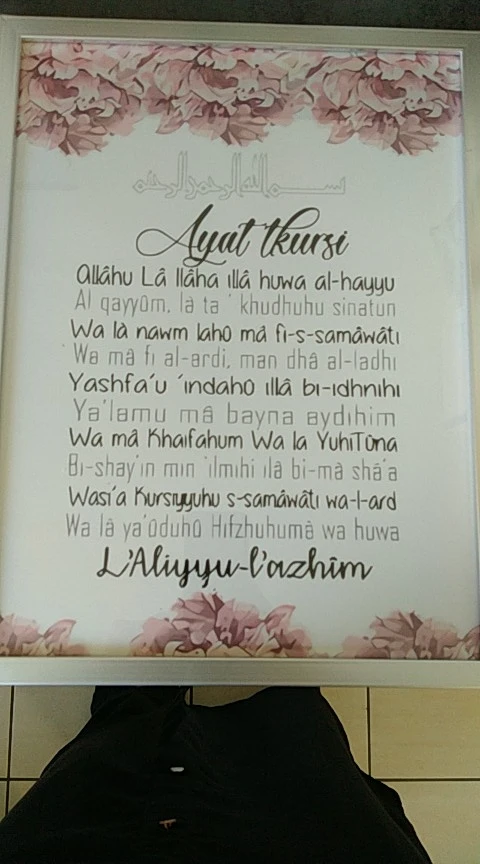 بسم الله الرحمن الرحيم
Ayat tkursi
Allâhu Lâ Ilâha illâ huwa al-hayyu
Al qayyûm, là ta ' khudhuhu sinatun
Wa là nawm lahû mâ fi-s-samâwâti
Wa mâ fi al-ardi, man dhâ al-ladhi
Yashfa'u 'indahû illâ bi-idhnihi
Ya'lamu mâ bayna aydihim
Wa mâ Khalfahum Wa la YuhiTûna
Bi-shay'in min 'ilmihi ilâ bi-mâ shâ'a
Wasi'a Kursiyyuhu s-samâwâti wa-l-ard
Wa lâ ya'ûduhû Hifzhuhumâ wa huwa
L'Aliyyu-l'azhîm